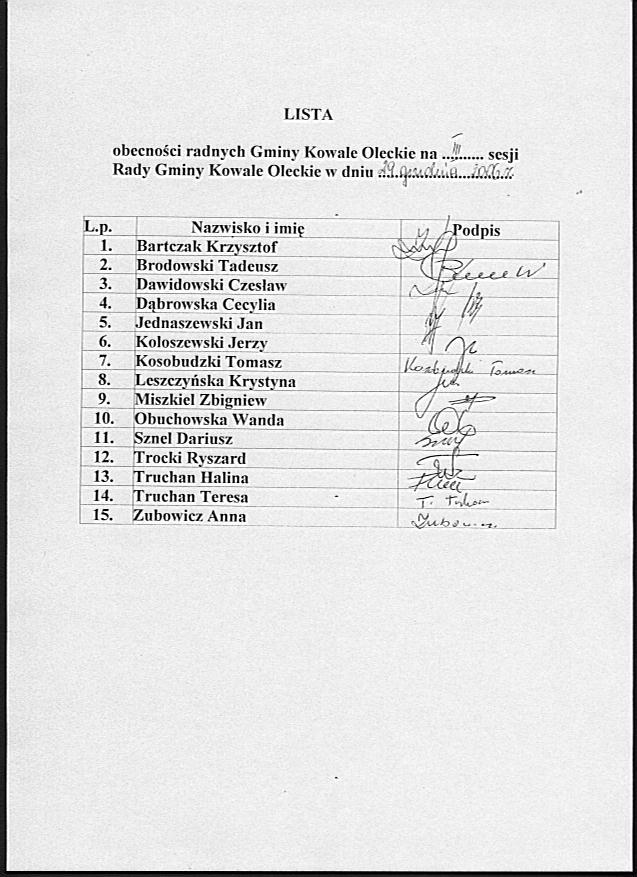 LISTA
obecności radnych Gminy Kowale Oleckie na ...III....... sesji
Rady Gminy Kowale Oleckie w dniu 29 grudnia 2006 r.
L.p. Nazwisko i imię Podpis
1. Bartczak Krzysztof
2. Brodowski Tadeusz
3. Dawidowski Czesław
4. Dąbrowska Cecylia
5. Jednaszewski Jan
6. Koloszewski Jerzy
7. Kosobudzki Tomasz Kosobudzki Tomasz
8. Leszczyńska Krystyna
9. Miszkiel Zbigniew
10. Obuchowska Wanda
11. Sznel Dariusz
12. Trocki Ryszard
13. Truchan Halina
14. Truchan Teresa T.
15. Zubowicz Anna